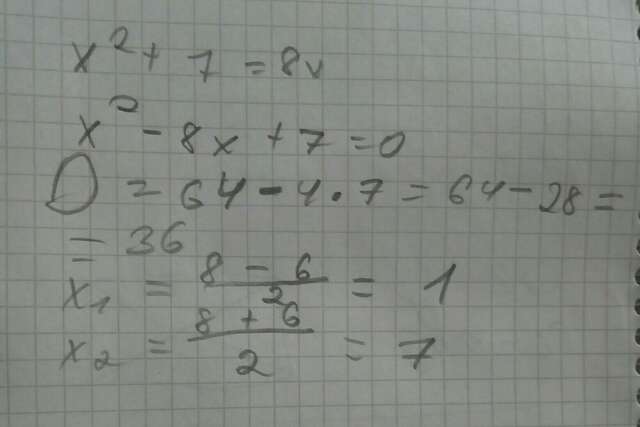 x² + 7 = 8x
x² - 8x + 7 = 0
D = 64 - 4 · 7 = 64 - 28 =
= 36
x₁ = (8 - 6)/2 = 1
x₂ = (8 + 6)/2 = 7